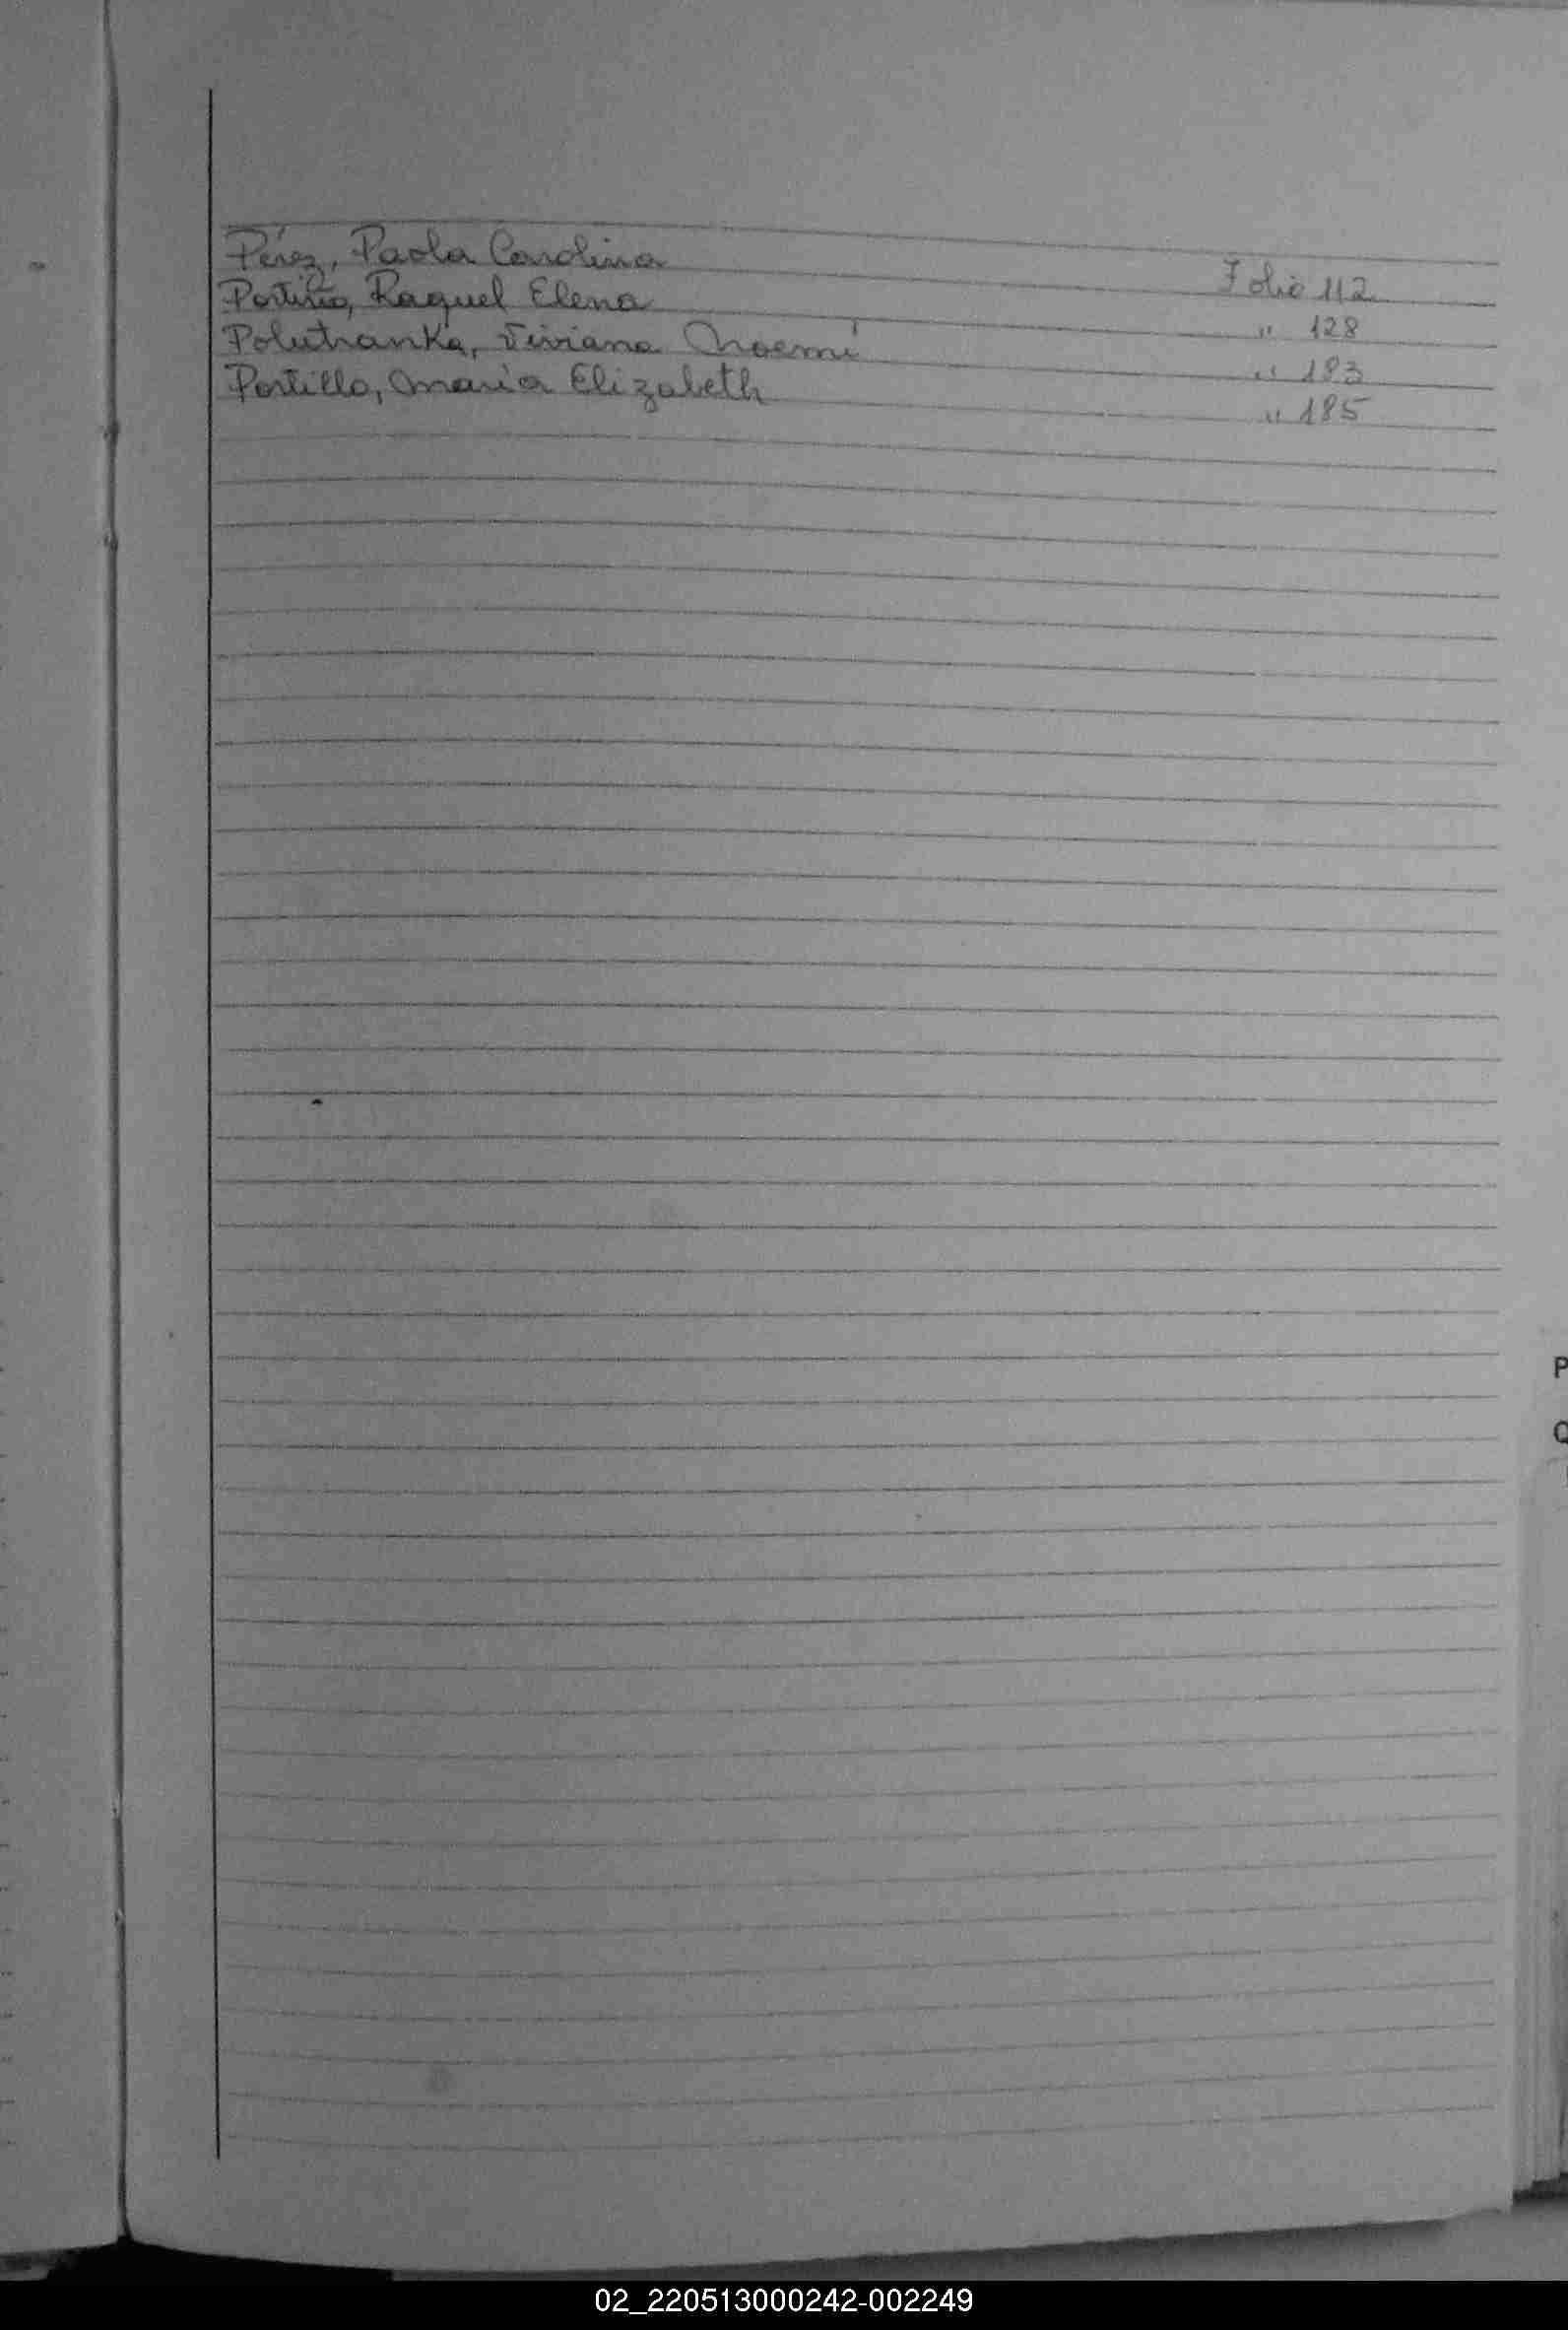 Pérez, Paola Carolina Folio 112
Portiño, Raquel Elena " 128
Polutranka, Viviana Noemí " 183
Portillo, María Elizabeth " 185
P
Q
02_220513000242-002249